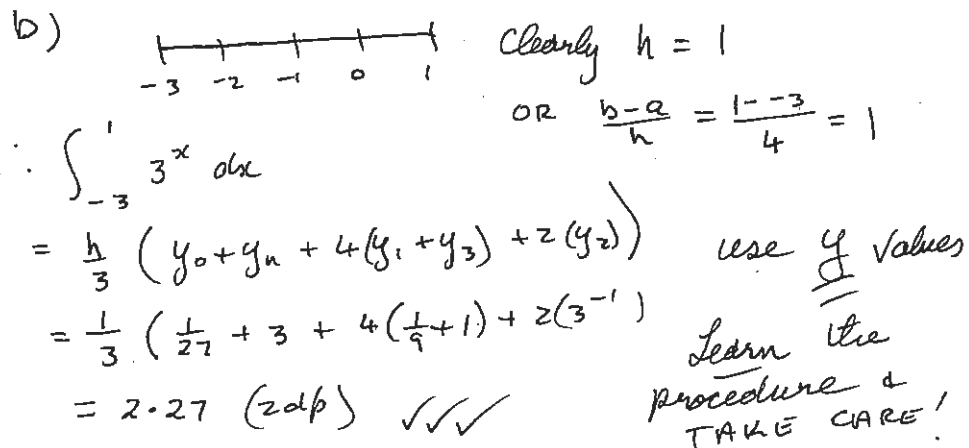 b)
-3 -2 -1 0 1
Clearly h = 1
OR (b-a)/h = (1--3)/4 = 1
∴ ∫_{-3}^{1} 3^x dx
= h/3 (y₀+yₙ + 4(y₁+y₃) + 2(y₂))
use y values
= 1/3 (1/27 + 3 + 4(1/9+1) + 2(3^{-1})
Learn the
procedure &
TAKE CARE!
= 2.27 (2dp) ✓✓✓